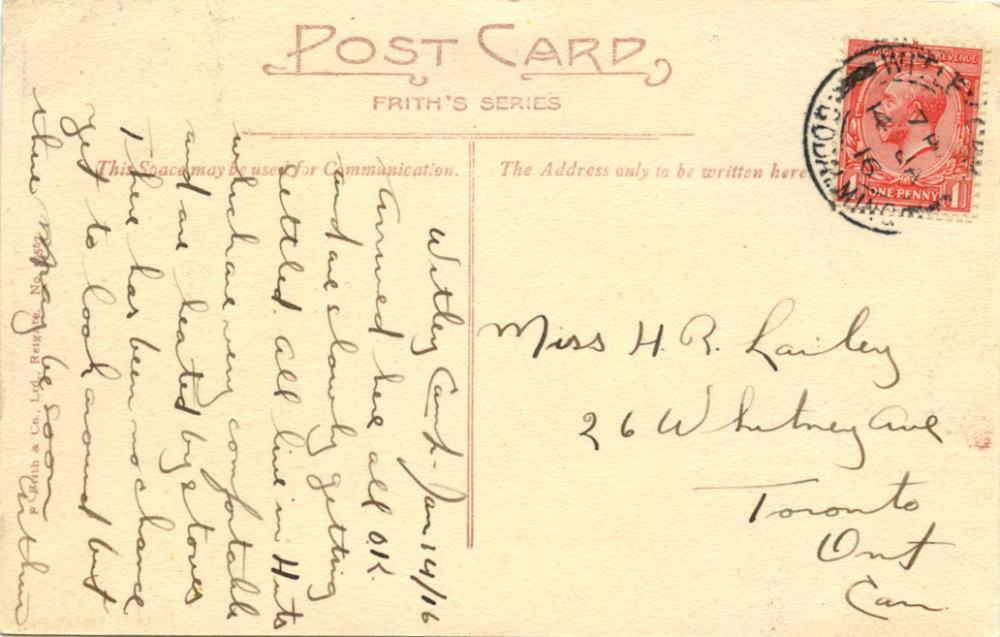 POST CARD
FRITH'S SERIES
This Space may be used for Communication.
The Address only to be written here
Witley Camp. Jan 14/16
Arrived here all O.K.
and are slowly getting
settled. all live in Huts
which are very comfortable
and are heated by stoves
There has been no chance
yet to look around but
there may be soon
Arthur
Miss H. R. Lailey
26 Whitney Ave
Toronto
Ont
Can.
F. Frith & Co., Ltd., Reigate. No.
REVENUE
ONE PENNY
1
WITLEY
GODALMING
7 P
14 JA
16